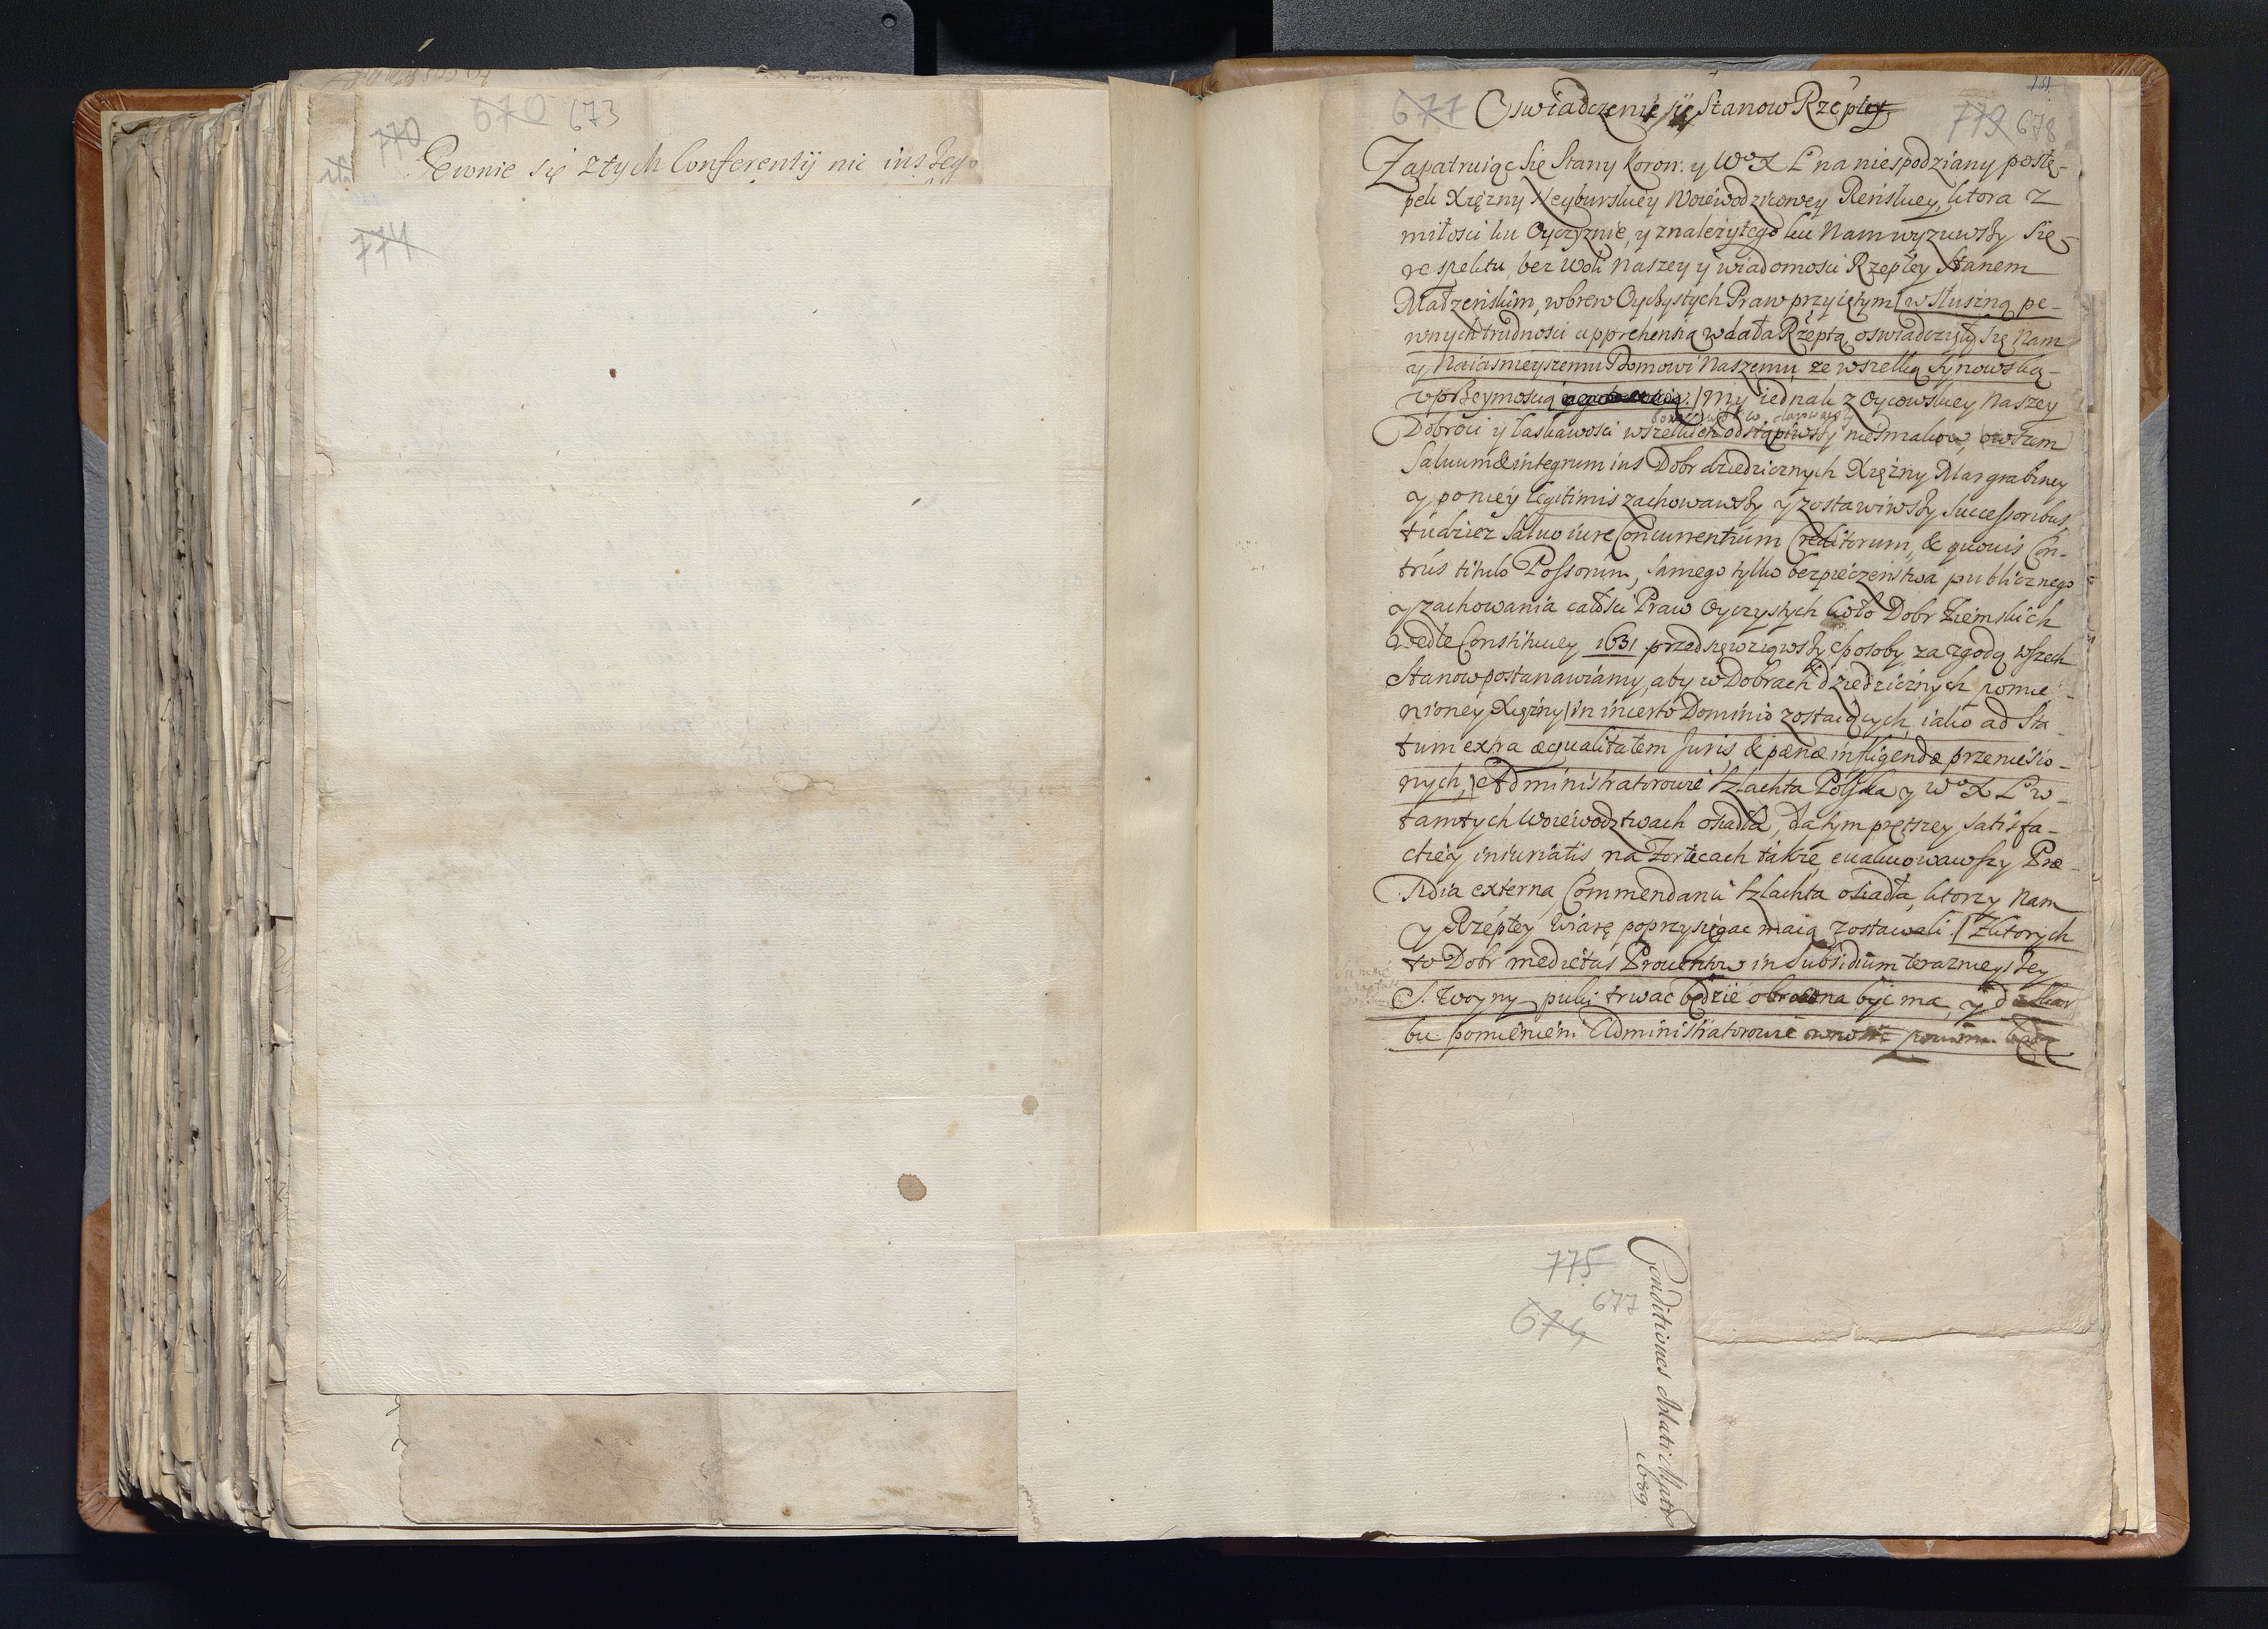 670 673
770
Pewnie się z tych Conferentij nic inszego
774
671 Oswiadczenie się Stanow Rzeptey 779 678
Zapatruiąc się Stany Koron: y WoXLo na niespodziany postę-
pek Xiężny Neyburskiey Woiewodzicowey Reńskiey, ktora z
miłosci ku Oyczyznie, y znależytego ku Nam wyzuwszy się
respektu, bez woli Naszey y wiadomosci Rzeptey Stanem
Małżeńskim, wbrew Oyczystych Praw przyiętym w słuszną pe-
wnych trudnosci apprehensią wdała Rzeptą, oswiadczyły się Nam
y Naiasnieyszemu Domowi Naszemu, ze wszelką synowską
vprzeymoscią My iednak z Oycowskiey Naszey
Dobroci y łaskawosci wszelkich odstąpiwszy niesmakow, owszem
Saluum & integrum ius Dobr dziedzicznych Xiężny Margrabiney
y poniey legitimis zachowawszy y zostawiwszy Successoribus,
tudziez saluo iure Concurrentium Creditorum, & quouis Con-
trús titulo Possorum, samego tylko bezpieczeństwa publicznego
y zachowania całości Praw Oyczystych koło Dobr Ziemskich
wedle Constitucy 1631 przedsięwziąwszy sposoby za zgodą wszech
Stanow postanawiamy, aby w Dobrach dziedzicznych pomie-
nioney Xiężny in incerto Dominio zostaiących, iako ad Sta-
tum extra æqualitatem Juris, & pœnæ infligendæ przeniesio-
nych, Administratorowie Szlachta Polska y WoXLo w
tamtych Woiewodztwach osiadła, dla tym prętszey satisfa-
ctiey iniuriatis na Fortecach także eualuowawszy Præ-
sidia externa, Commendanci Szlachta osiadła, ktorzy Nam
y Rzeptey Wiarę poprzysięgac maią zostawali. Zktorych
to Dobr medietas Prouentow in Subsidium teraznieyszey
S. Woyny puki trwac będzie obrocona byc ma, y do skar
bu pomienieni Administratorowie wnosic powinni będą
775
677
674
Conditiones Ablati
1689